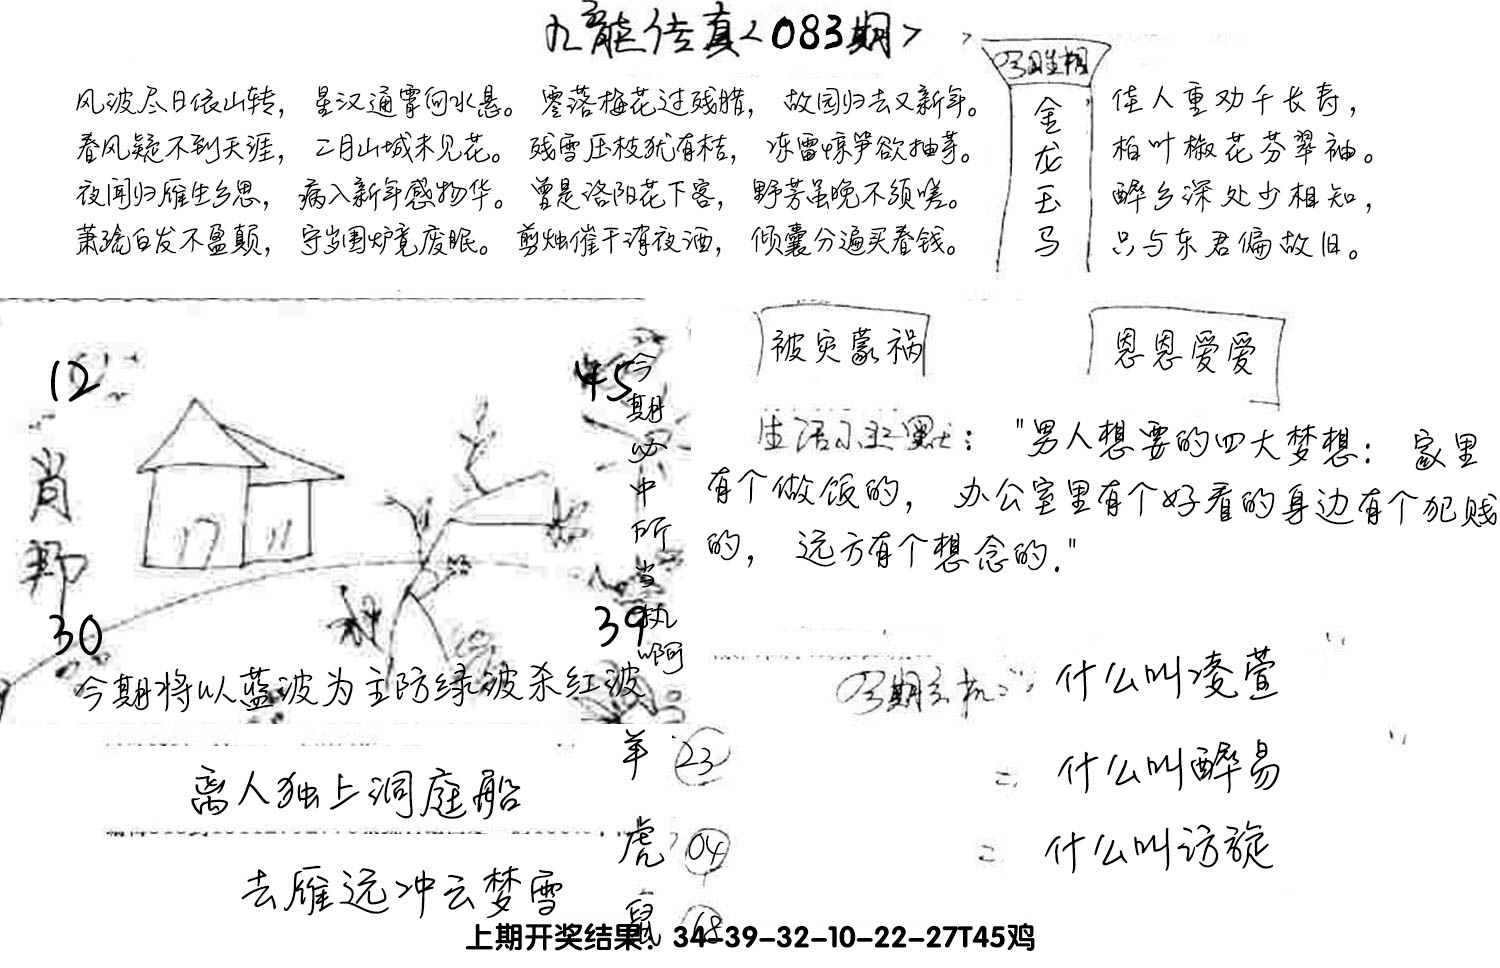 九龍传真<083期>
风波尽日依山转，星汉通霄向水悬。零落梅花过残腊，故园归去又新年。
春风疑不到天涯，二月山城未见花。残雪压枝犹有桔，冻雷惊笋欲抽芽。
夜闻归雁生乡思，病入新年感物华。曾是洛阳花下客，野芳虽晚不须嗟。
萧疏白发不盈颠，守岁围炉竟废眠。剪烛催干消夜酒，倾囊分遍买春钱。
金龙玉马
佳人重劝千长寿，
柏叶椒花芬翠袖。
醉乡深处少相知，
只与东君偏故旧。
12
45
肖
30
39
今期必中所当执啊
今期将以蓝波为主防绿波杀红波
被灾蒙祸
恩恩爱爱
"男人想要的四大梦想：家里
有个做饭的，办公室里有个好看的身边有个犯贱
的，远方有个想念的."
什么叫凌萱
什么叫醉易
什么叫访旋
羊 23
虎 04
鼠 68
离人独上洞庭船
去雁远冲云梦雪
上期开奖结果：34-39-32-10-22-27T45鸡